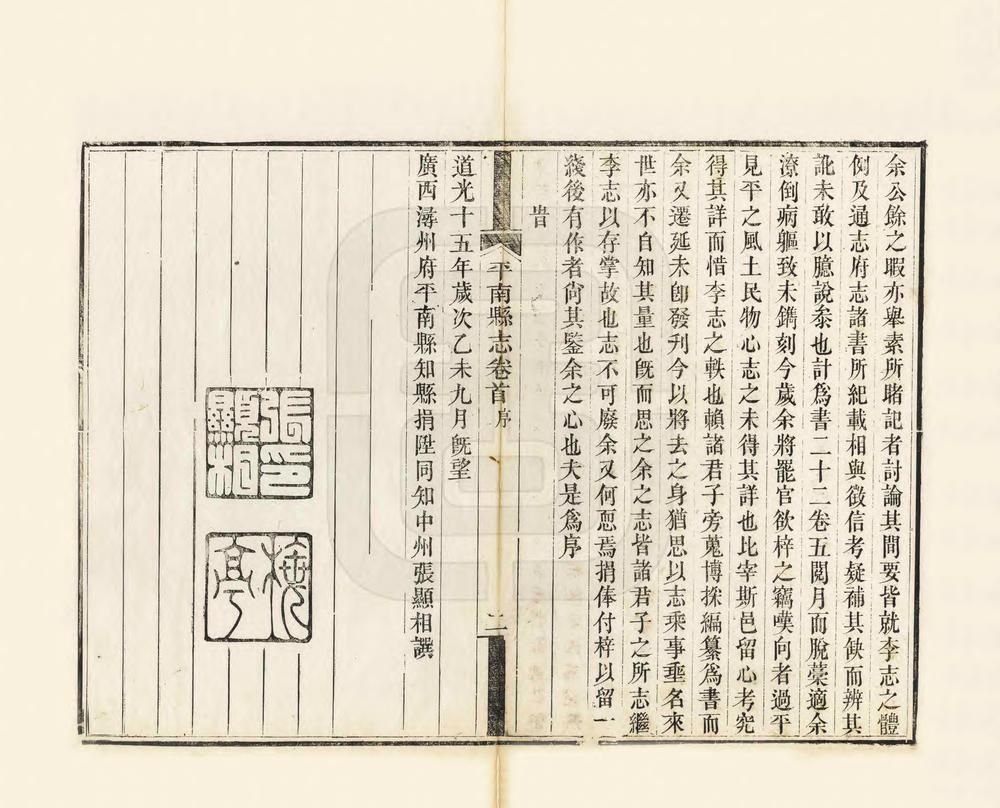 余公餘之暇亦舉素所睹記者討論其間要皆就李志之體
例及通志府志諸書所紀載相與徵信考疑補其缺而辨其
訛未敢以臆說叅也計爲書二十二卷五閱月而脫藁適余
潦倒病軀致未鐫刻今歲余將罷官欲梓之竊嘆向者過平
見平之風土民物心志之未得其詳也比宰斯邑留心考究
得其詳而惜李志之軼也賴諸君子旁蒐博採編纂爲書而
余又遷延未卽發刋今以將去之身猶思以志乘事垂名來
世亦不自知其量也旣而思之余之志皆諸君子之所志繼
李志以存掌故也志不可廢余又何恧焉捐俸付梓以留一
綫後有作者尙其鑒余之心也夫是爲序
旹
平南縣志卷首 序 二
道光十五年歲次乙未九月旣望
廣西潯州府平南縣知縣捐陞同知中州張顯相譔
張顯相印
梅亭